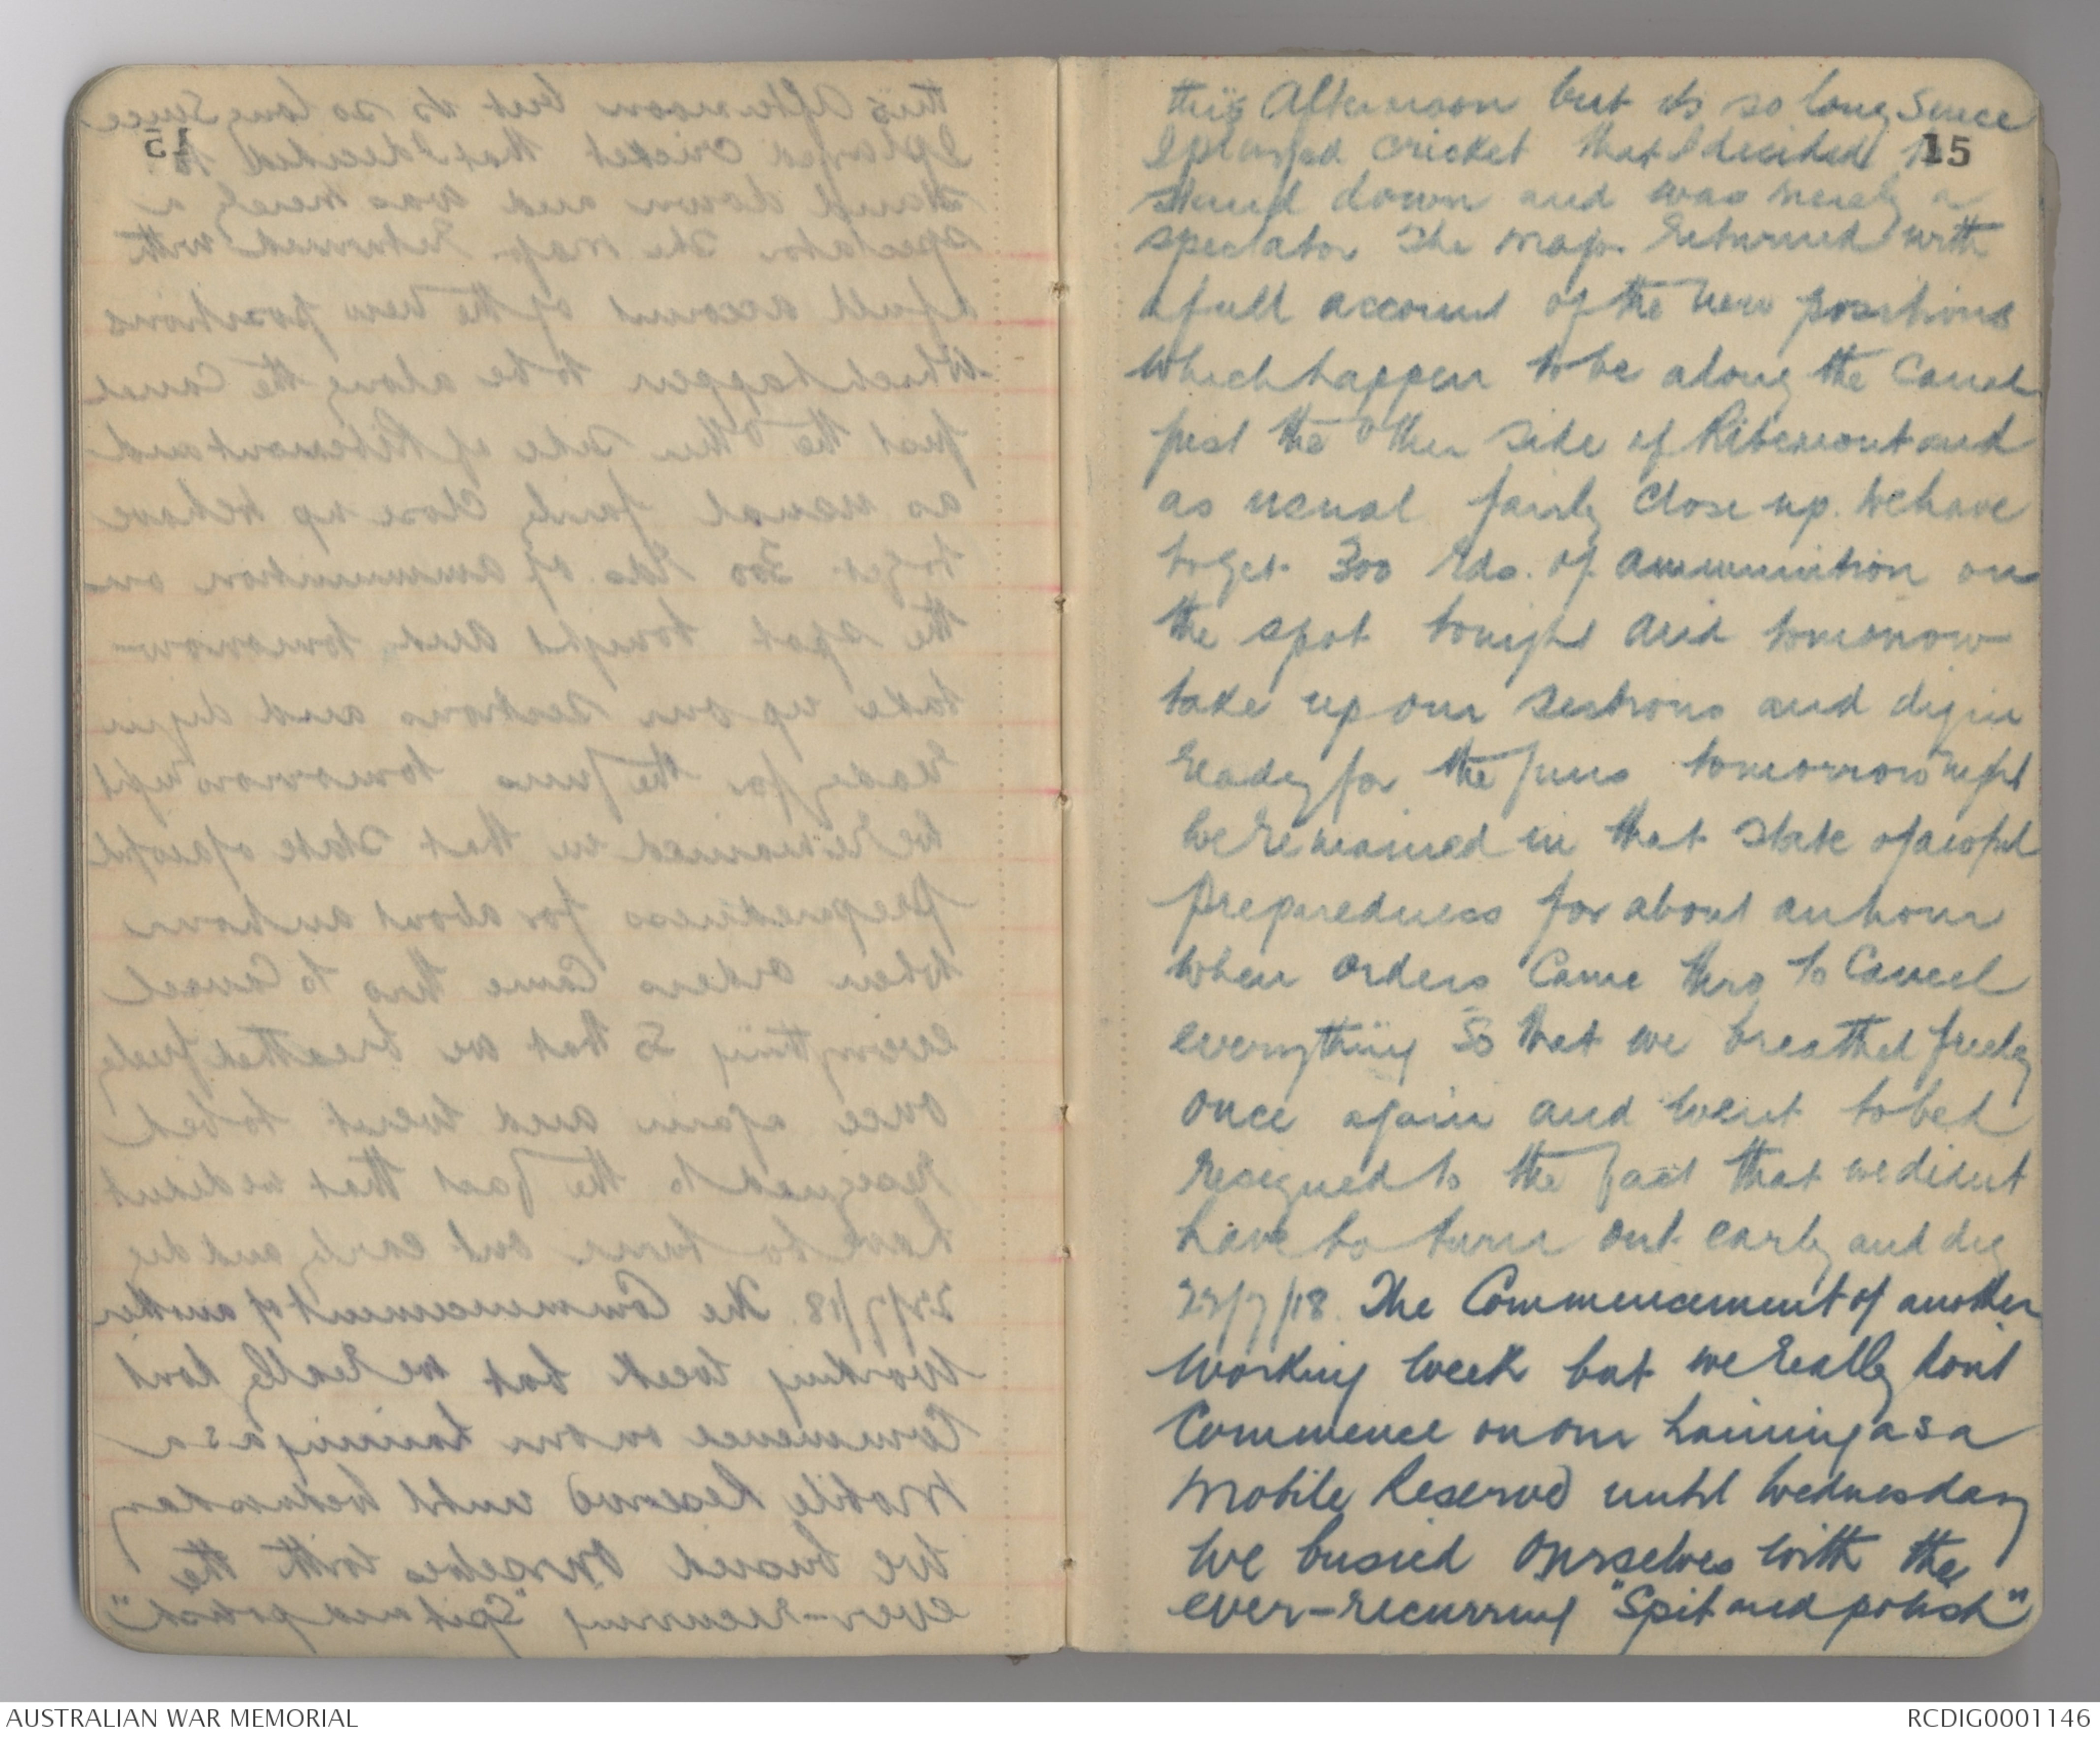 15
this Afternoon but its so long since
I played cricket that I decided to
stand down and was merely a
spectator The Major returned with
a full account of the new positions
which happen to be along the Canal
just the other side of Ribemont and
as usual fairly close up. We have
to get 300 rds. of ammunition on
the spot tonight and tomorrow
take up our sections and dig in
ready for the guns tomorrow night
We remained in that state of awful
preparedness for about an hour
when orders came thro to cancel
everything So that we breathed freely
once again and went to bed
resigned to the fact that we didnt
have to turn out early and dig
22/7/18. The Commencement of another
working week but we really dont
Commence on our training as a
Mobile Reserve until Wednesday
We busied Ourselves with the
ever-recurring "Spit and polish"
AUSTRALIAN WAR MEMORIAL
RCDIG0001146